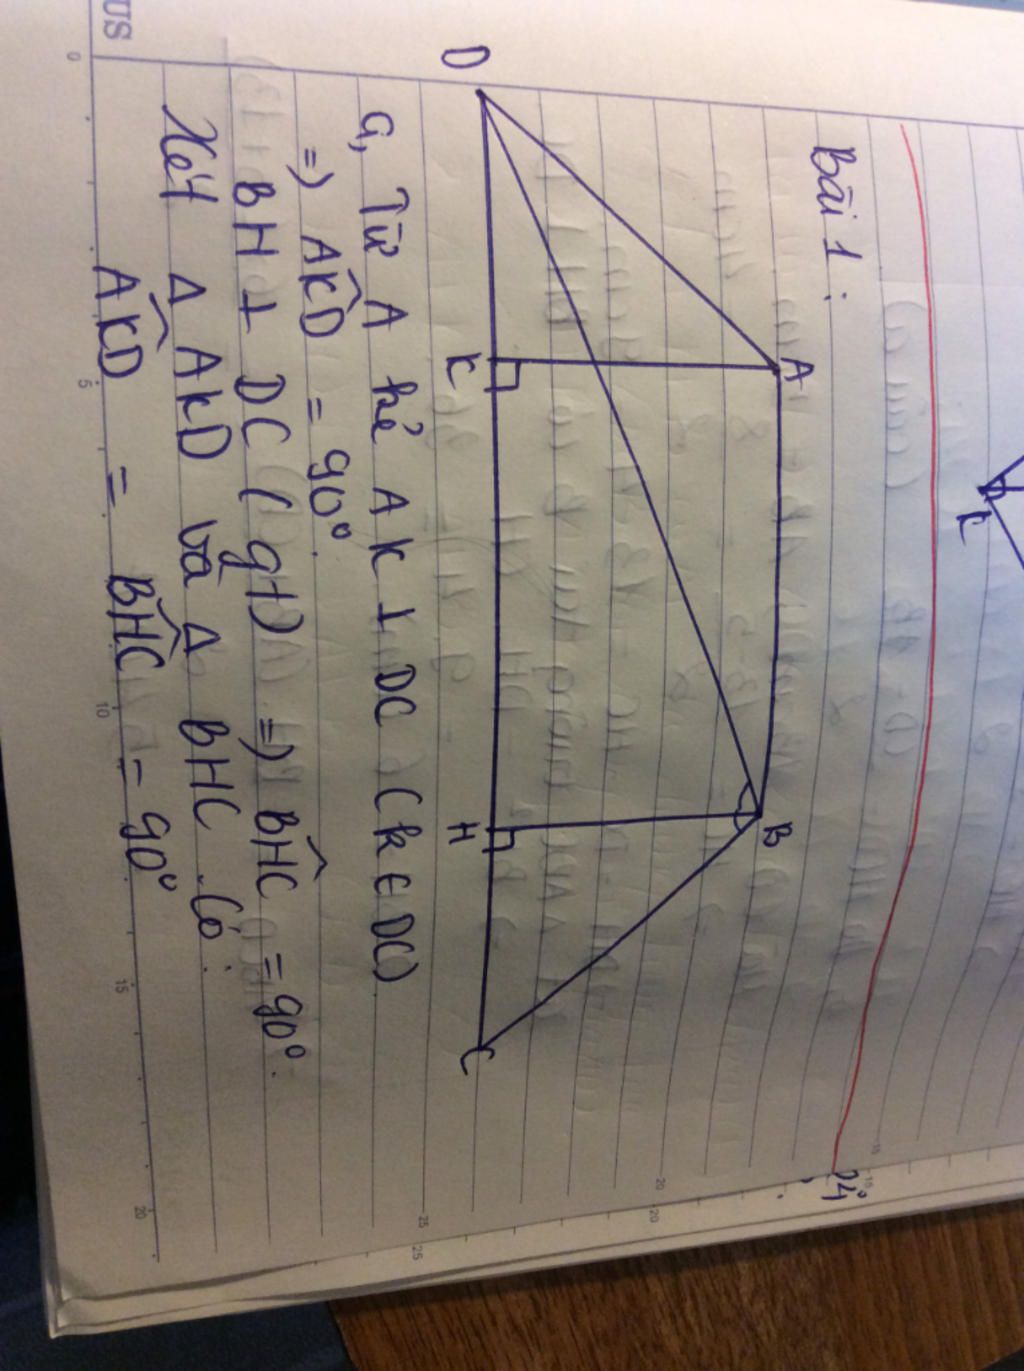 Bài 1:
A
B
D
K
H
C
a, Từ A kẻ AK ⊥ DC (K ∈ DC)
=) AK̂D = 90°.
BH ⊥ DC (gt) =) BĤC = 90°.
Xét Δ AKD và Δ BHC có:
AK̂D = BĤC = 90°